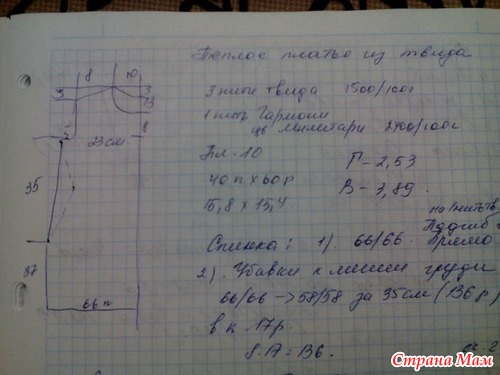 Теплое платье из твида
3 нити твида 1500/100г
1 нить Гармони
цв милитари 2400/100г
Пл - 10
Г - 2,53
40п х 60р
В - 3,89.
15,8 х 15,4
Подгиб
Спинка: 1) 66/66. Прямо
2) Убавки к линии груди
66/66 -> 58/58 за 35см (136р)
в к. 17р.
8.17=136.
8 10
3 3
13
23см 8
35
37
66п
Страна Мам